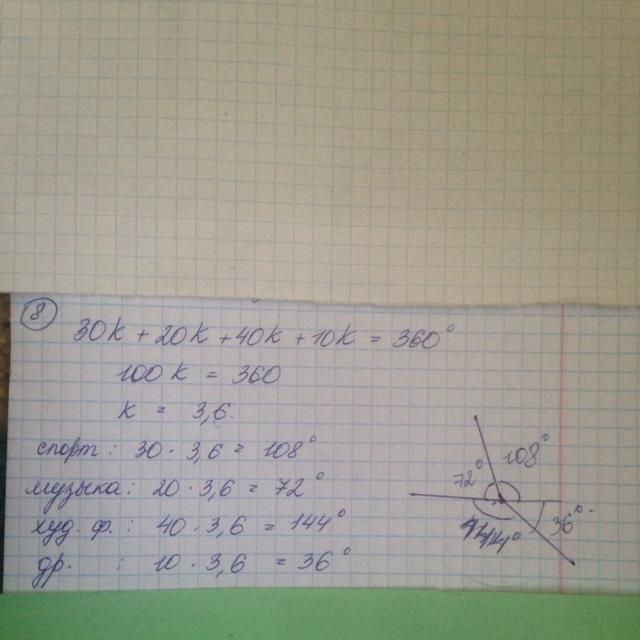 8
30k + 20k + 40k + 10k = 360°
100k = 360
k = 3,6.
спорт: 30 · 3,6 = 108°
музыка: 20 · 3,6 = 72°
худ. ф.: 40 · 3,6 = 144°
др. : 10 · 3,6 = 36°
72° 108°
144° 36°